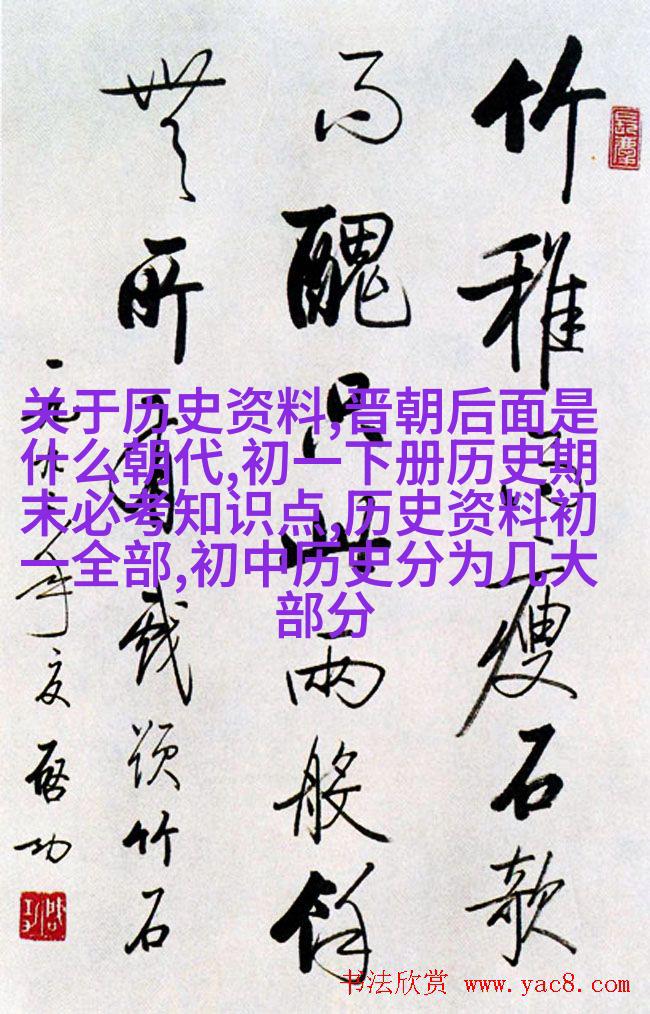 竹稚而瘦石欹
而醜只此兩般餘
無所有戲題竹石
一九年夏啓功
关于历史资料,晋朝后面是
什么朝代,初一下册历史期
末必考知识点,历史资料初
一全部,初中历史分为几大
部分
书法欣赏 www.yac8.com